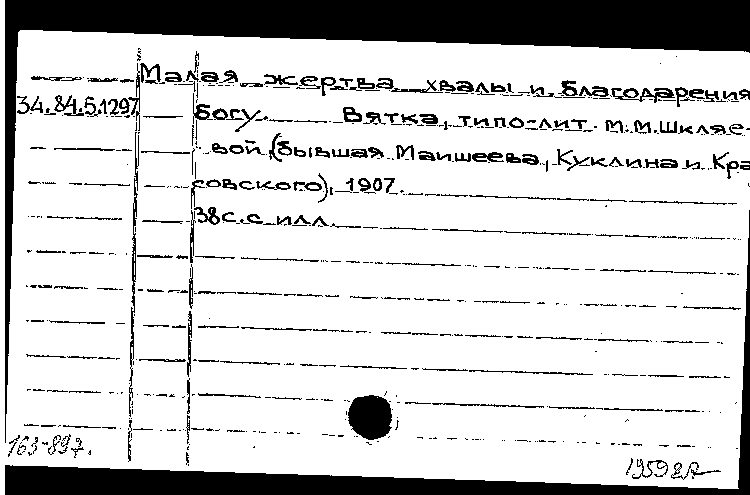 Малая жертва хвалы и благодарения
34.84.5.1297 богу. Вятка, типо-лит. М.М.Шкляе-
вой (бывшая Маишеева, Куклина и Кра
совского), 1907.
38с. с илл.
163-897.